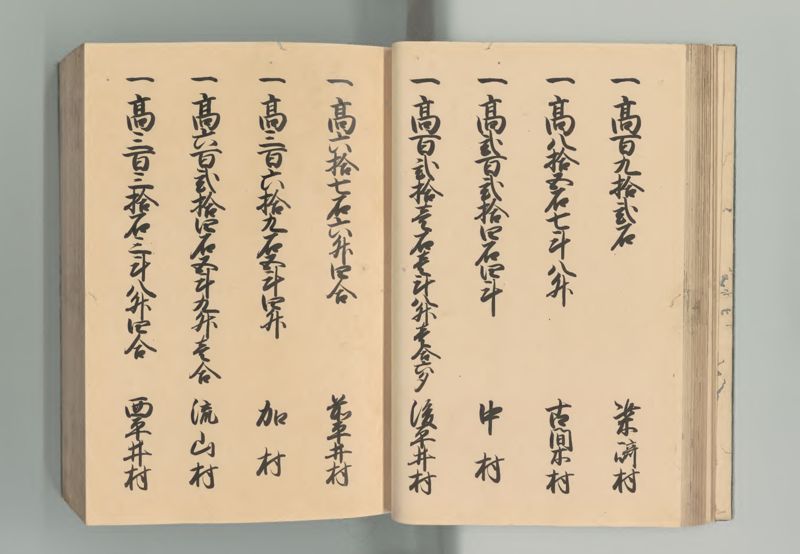 一 高百九拾弐石 柴崎村
一 高八拾五石七斗八升 古間木村
一 高弐百弐拾四石四斗 中村
一 高百弐拾壱石壱斗八升壱合六夕 後平井村
一 高六拾七石六升四合 前平井村
一 高三百六拾九石五斗四升 加村
一 高六百弐拾四石五斗九升壱合 流山村
一 高三百三拾石三斗八升四合 西平井村